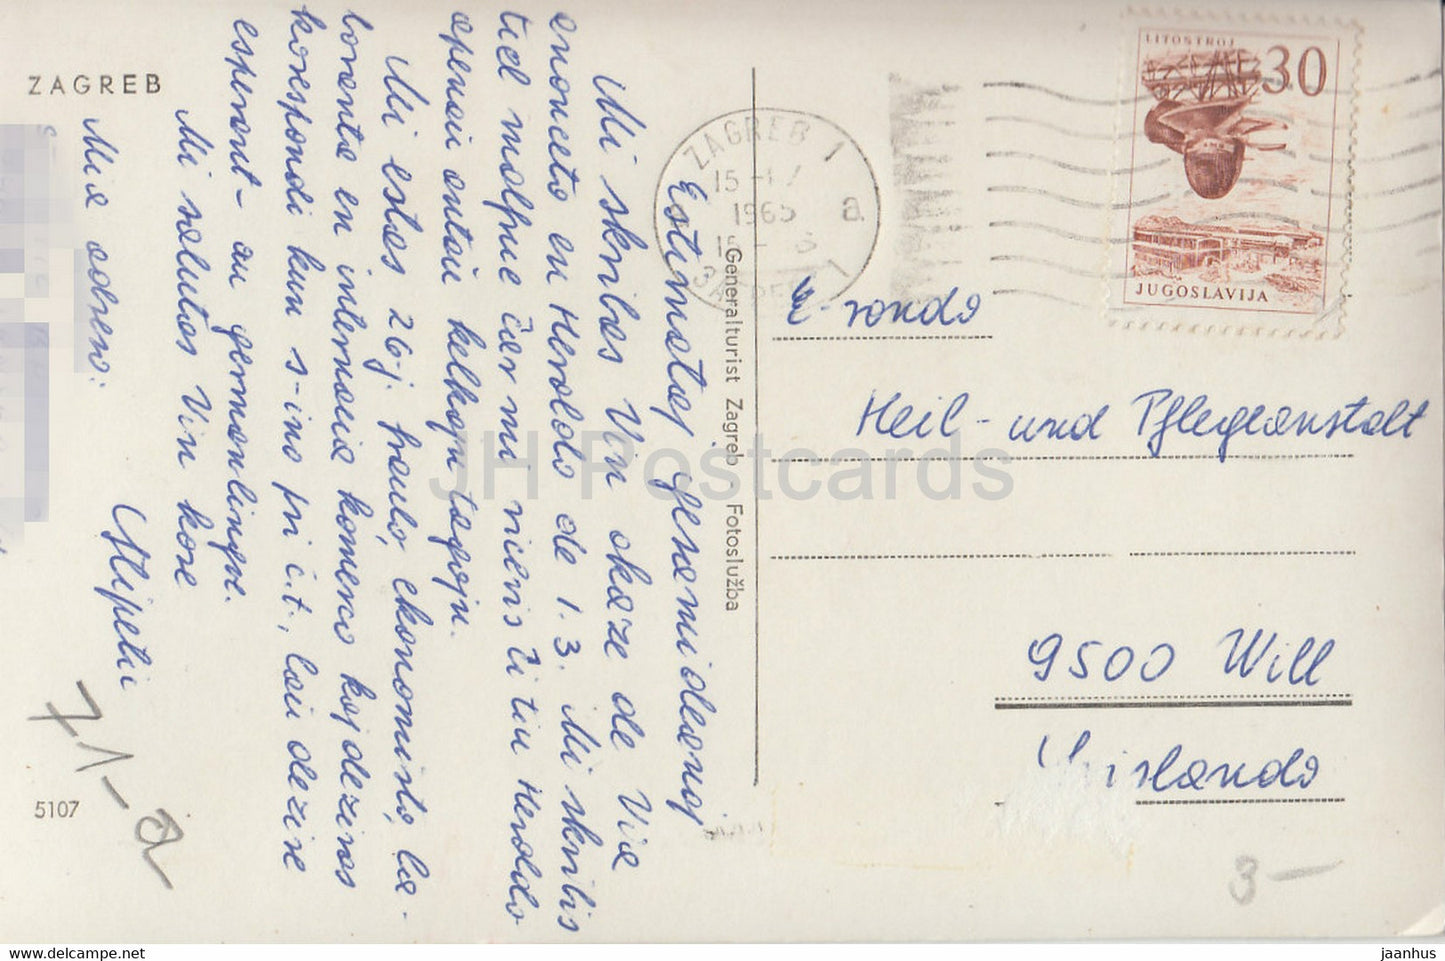 ZAGREB
Estimataj gesamideanoj
Mi skribas Vin okaze de Via
anonceto en Heroldo de 1.3. Mi skribis
tiel malfrue ĉar mi ricevis ĉi tiu Heroldo
apenaŭ antaŭ kelkajn tagojn.
Mi estas 26-j. fraulo, ekonomisto, la-
boranta en internacia komerco kaj deziras
korespondi kun s-ino pri ĉ.t., laŭ dezire
esperant- au germanlingve.
Mi salutas Vin kore
Mia adreso:
71-a
5107
Generalturist Zagreb - Fotoslužba
ZAGREB 1
a
1965
LITOSTROJ
30
JUGOSLAVIJA
E-rondo
Heil- und Pflegeanstalt
9500 Will
Svislando
3 –
JH Postcards
www.delcampe.net
jaanhus